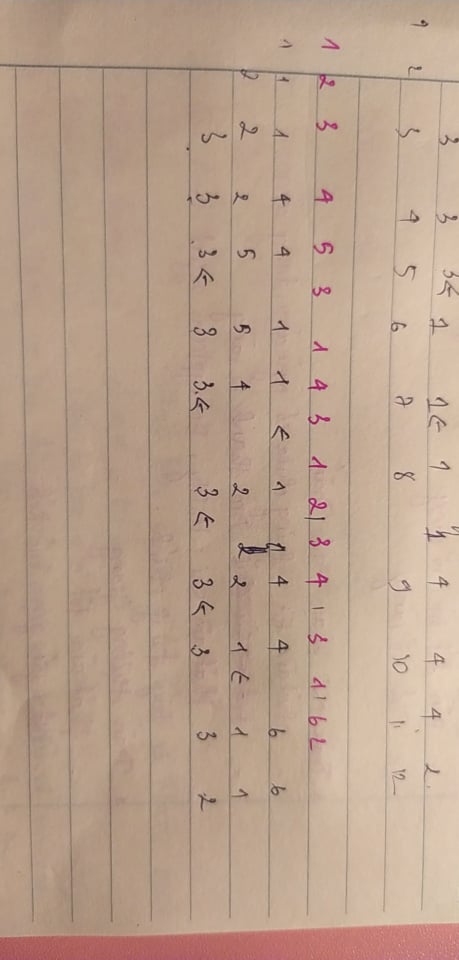 3 3 3← 1 1← 1 1 4 4 4 2
1 2 3 4 5 6 7 8 9 10 11 12
1 2 3 4 5 3 1 4 3 1 2 3 4 3 1 6 2
1 1 1 4 4 1 1 ← 1 1 4 4 6 6
2 2 2 5 5 4 2 2 2 1← 1 1
3 3 3← 3 3← 3← 3← 3 3 2